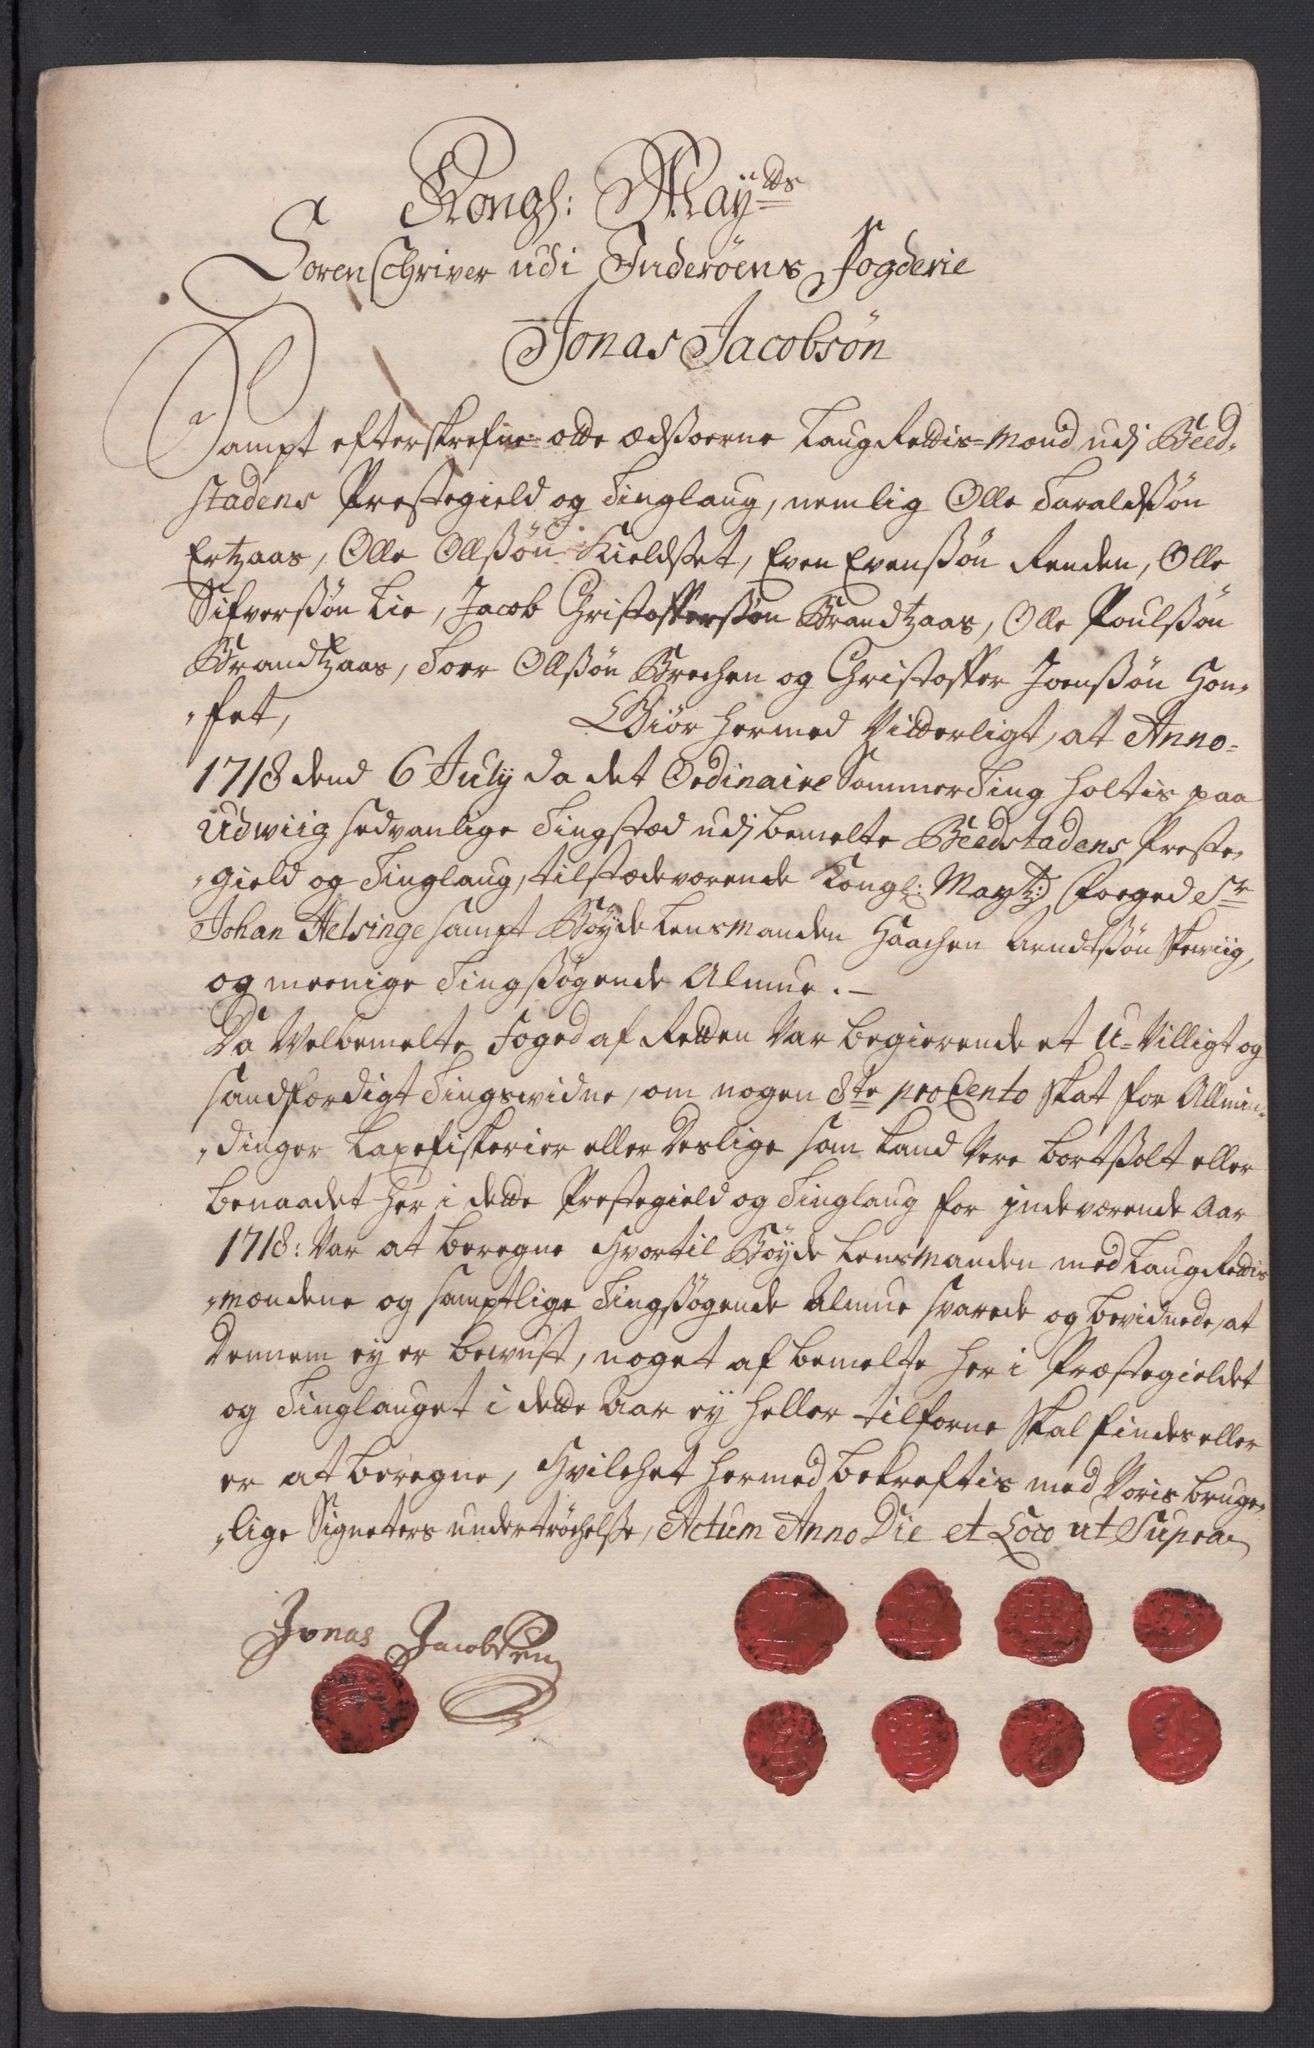 Kongl: Maÿtts
Sorenschriver udi Inderöens Fogderie
Jonas Jacobsön
Sampt efterskrefne otte ædsoerne Laug Rettis-Mænd udj Beed-
stadens Prestegield og Tinglaug, nemlig Olle Taraldssön
Ertzaas, Olle Ollssön Kieldset, Even Evenssön Renden, Olle
Sifverssön Lie, Jacob Christofferssön Brandtzaas, Olle Poulssön
Brandtzaas, Toer Ollssön Brechen og Christoffer Joenssön Hon-
-fet, Giör hermed Vitterligt, at Anno-
1718 dend 6 July da det Ordinaire Sommer Ting holtis paa
Udwiig sedvanlige Tingsted udj bemelte Beedstadens Preste-
-gield og Tinglaug, tilstædeværende Kongl: Mayts: Foeged Sr
Johan Helsinge sampt Böyde Lensmanden Haachen Arndtssön Skeviig,
og meenige Tingssögende Almue. –
Da Welbemelte Foged af Retten Var begierende et U-Villigt og
sandfærdigt Tingswidne, om nogen 8te pro Cento Skat for Allmin-
-dinger Laxefiskerier eller deslige som kand Vere bortssolt eller
benaadet her i dette Prestegield og Tinglaug for jndeværende Aar
1718: Var at beregne hvortil Böyde Lensmanden med Laug Rettis
-mændene og samptlige Tingssögende Almue svarede og bevidnede, at
Dennem ey er bewust, noget af bemelte her i Præstegieldet
og Tinglauget i dette Aar ey heller tilforne Skal findes eller
er at beregne, Hvilchet hermed bekreftis med Voris bruge-
-lige Signeters undertröchelse, Actum Anno Die et Loco ut Supra
Jonas Jacobsen